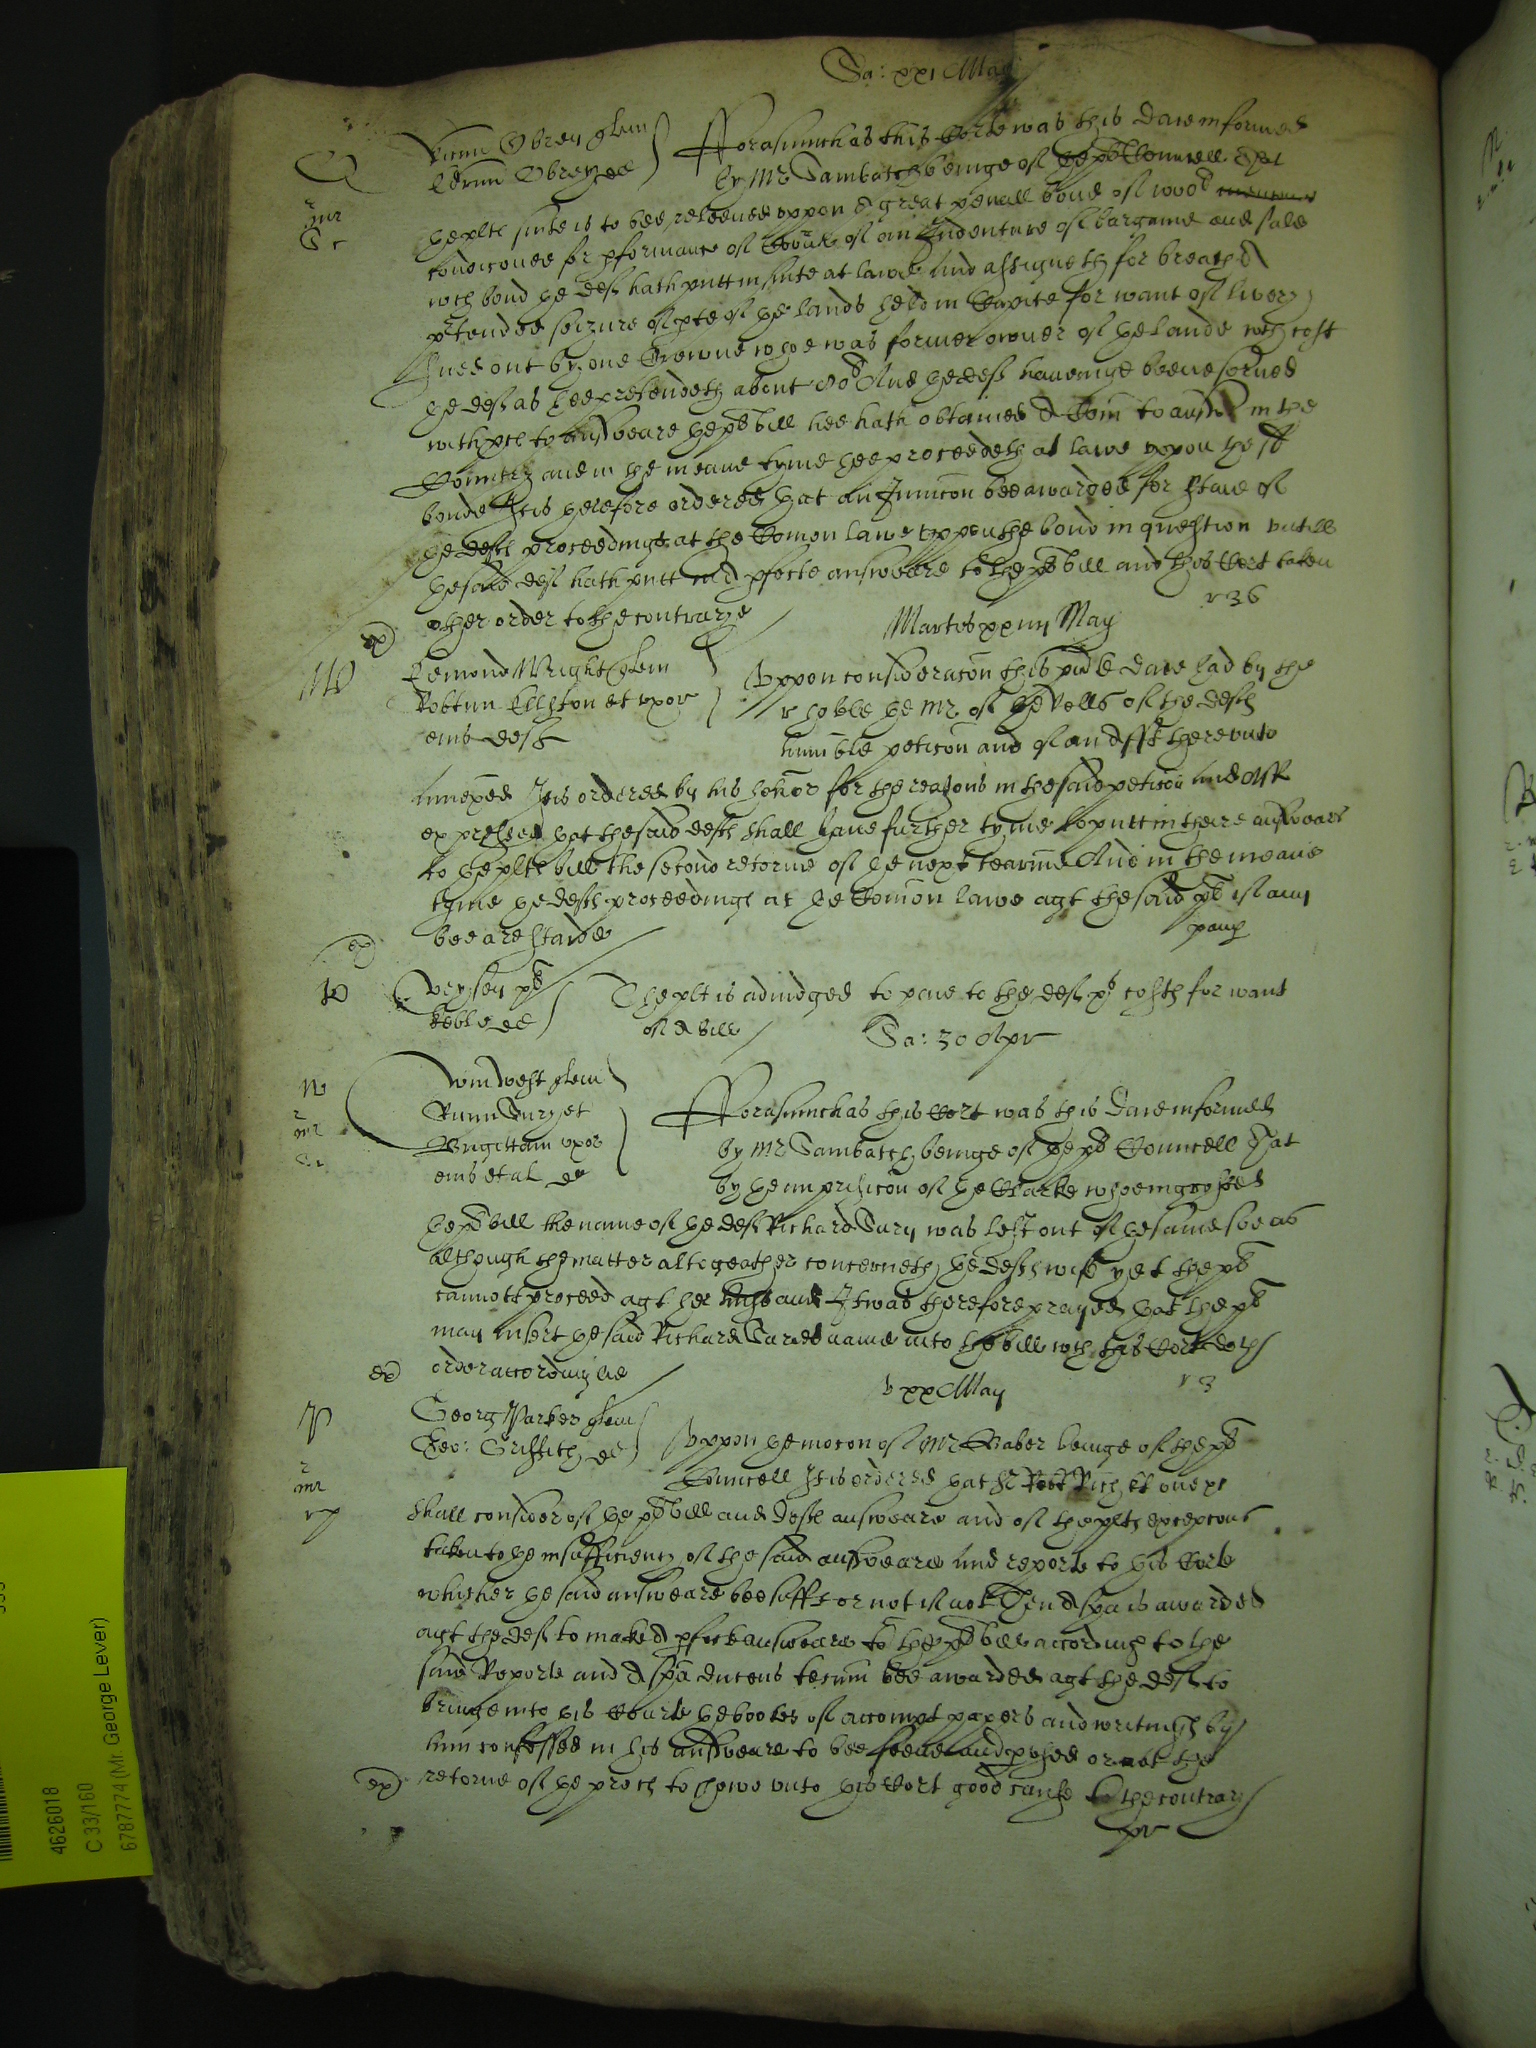 Sa: xxi May
O
Ricum Obrey quer
Edrum Obrey def
Forasmuch as this Corte was this daie informed
by Mr Sambatch beinge of the pl Councell That
the plts suite is to bee releeved uppon a great penall bond of
condiconed for pformance of of an Indenture of bargaine and sale
wch bond the deft hath putt in suite at lawe and assigneth for breach a
ptended seizure of pte of the lands held in Capite for want of livery
sued out by one whoe was former owner of the lande wch cost
the deft as hee pretendeth about And the deft haveinge beene served
with pces to answeare the pl bill hee hath obteined a Comn to answer in the
Countrey and in the meane tyme hee proceedeth at lawe uppon the sd
bonde It is therefore ordered that an Iniuncon bee awarded for staie of
the defts proceedings at the Comon lawe uppon the bond in question untill
the said deft hath putt in a pfecte answeare to the pl bill and this Cort taken
other order to the contrarye
r 36
ex
Martis xxiiii May
W
Edmond Wright quer
Robtum Ellston et uxor
eius defts
Uppon consideracon this psente daie had by the
r hoble the Mr of the Rolls of the defts
humble peticon and of an Afft thereunto
annexed It is ordered by his honor for the reasons in the said peticon and Afft
expressed that the said defts shall have further tyme to putt in theire answeare
to the plts bill the second retorne of the next tearme And in the meane
tyme the defts proceedings at the Comon lawe agt the said pl if any
bee are staide
ex
The plt is adiudged to paie to the deft costs for want
of a bill
Sa: 30 Apr
W
Wm West quer
Ricum Sury et
Brigittam uxor
eius et al def
Forasmuch as this Cort was this daie informed
by Mr Sambatch beinge of the pl Councell That
by the imprisicon of the Clarke whoe ingrossed
the pl bill the name of the deft Richard Sury was left out of the same soe as
although the matter altogeather concerneth the defts wife yet the pl
cannott proceed agt her husband It was therefore prayed that the pl
may insert the said Richard Suries name into the bill wch this Cort doth
order accordinglie
r 3
ex
v xx May
P
Georg Parker quer
Geo: Griffith def
Uppon the mocon of Mr Baber beinge of the pl
Councell It is ordered that Sr Robt Rich kt one &c
shall consider of the pl bill and defts answeare and of the plts excepcons
taken to the insufficiency of the said answeare and reporte to this Corte
whether the said answeare bee sufft or not if not Then a spa is awarded
agt the deft to make a pfecte answeare to the pl bill according to the
said Reporte and a spa ducens tecum bee awarded agt the deft to
bringe into this Courte the bookes of accompt papers and writings by
him confessed in his answeare to bee or att the
retorne of the proces to shewe unto this Cort good cause to the contrary
ex
4626018
C 33/160
6787774 (Mr George Lever)